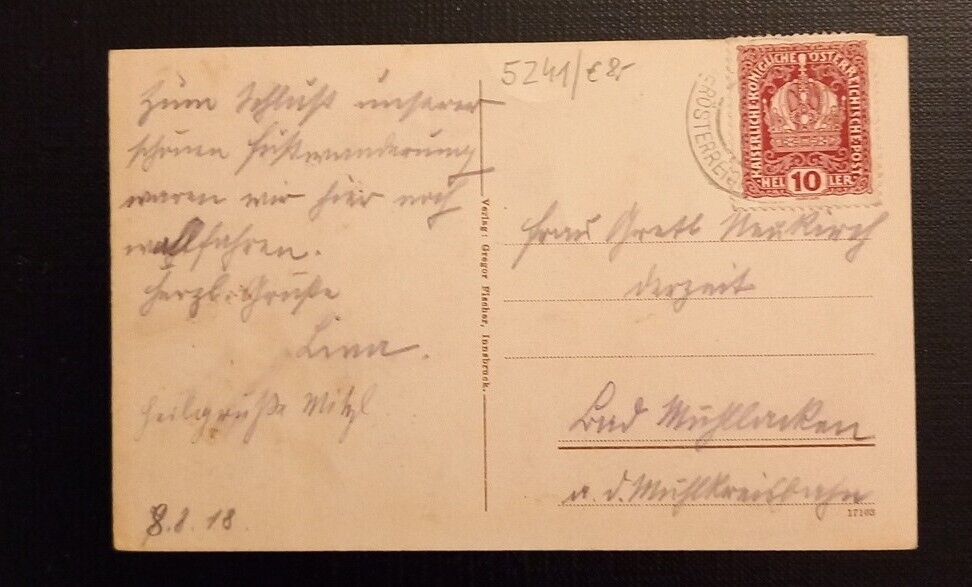 5241/€8,-
Zum Schluß unserer
schönen Fußwanderung
waren wir hier noch
wallfahren.
Herzl. Grüße
Linn.
Heilgrüße Mitzl
8.8.18
Verlag: Gregor Fischer, Innsbruck.
KAISERLICHE KÖNIGLICHE ÖSTERREICHISCHE POST
HELLER
10
RÖSTERREIC
Frau Gretl Neukirch
derzeit
Bad Mühllacken
a. d. Mühlkreisbahn
17163